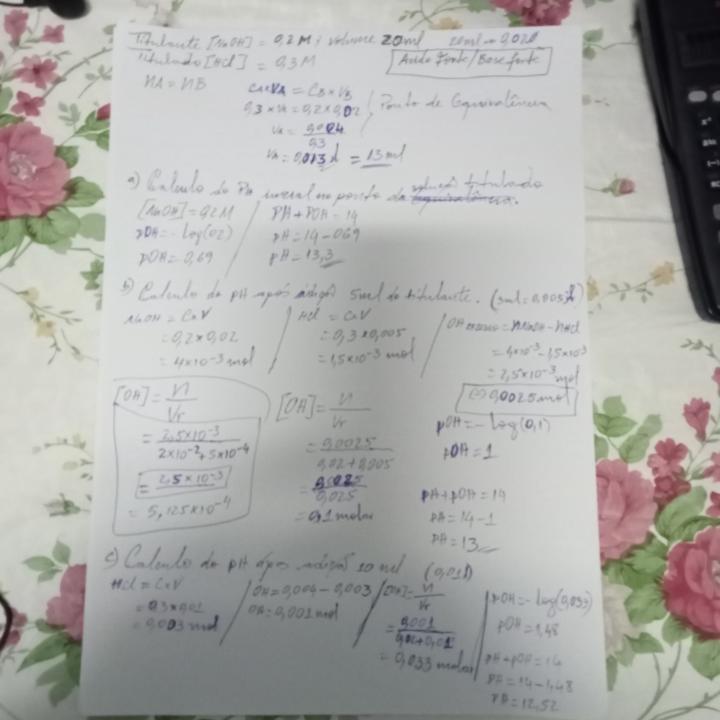 Titulante [NaOH] = 0,2 M; volume 20ml 20ml → 0,02l
Titulado [HCl] = 0,3 M
Ácido Forte/Base forte
nA = nB
CA×VA = CB×VB
0,3 × VA = 0,2×0,02
Ponto de Equivalência
VA = 0,004
0,3
VA = 0,013 l = 13 ml
a) Calculo do PH inicial no ponto da solução titulado
equivalência.
[NaOH] = 0,2M
pOH = - log(02)
pOH = 0,69
PH + POH = 14
pH = 14 - 069
pH = 13,3
b) Calculo do pH após adição 5ml do titulante. (5ml = 0,005l)
NaOH = C×V
= 0,2 × 0,02
= 4×10-³ mol
HCl = C×V
= 0,3 × 0,005
= 1,5×10-³ mol
OH excesso = nNaOH - nHCl
= 4×10-³ - 1,5×10-³
= 2,5×10-³ mol
0,0025 mol
[OH] = n
Vr
= 2,5×10-³
2×10-² + 5×10-⁴
= 2,5×10-³
= 5,125×10-⁴
[OH] = n
Vr
= 0,0025
0,02 + 0,005
= 0,0025
0,025
= 0,1 molar
pOH = - log(0,1)
pOH = 1
pH + pOH = 14
pH = 14 - 1
pH = 13
c) Calculo do pH após adição 10 ml (0,01l)
HCl = C×V
= 0,3 × 0,01
= 0,003 mol
OH = 0,004 - 0,003
OH = 0,001 mol
[OH] = n
Vr
= 0,001
0,02 + 0,01
= 0,033 molar
pOH = - log(0,033)
pOH = 1,48
pH + pOH = 14
pH = 14 - 1,48
pH = 12,52